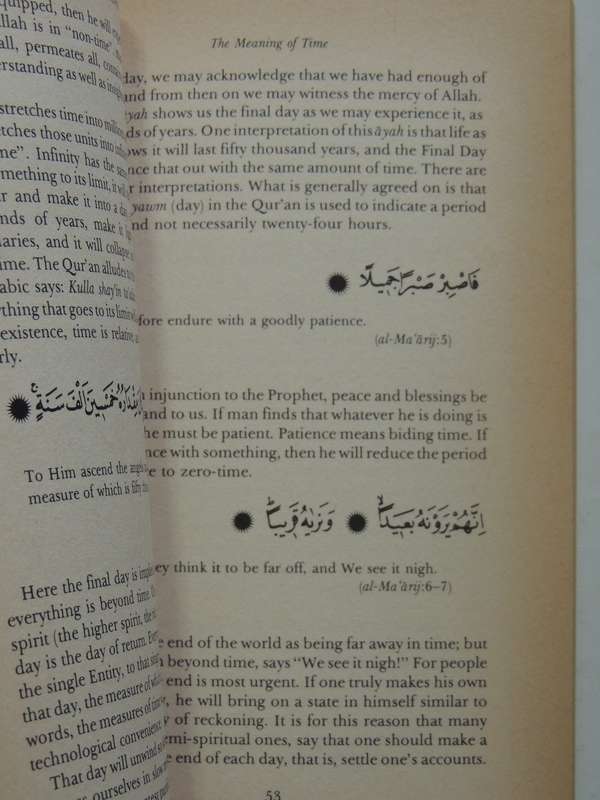 equipped, then he will
Allah is in “non-time”.
all, permeates all,
understanding as well as
stretches time into
stretches those units into
time”. Infinity has the
something to its limit, it
and make it into a
of years, make it
and it will collapse
time. The Qur'an alludes to
Arabic says: Kulla shay'in
anything that goes to its limit
existence, time is relative,
مِقْدَارُهُ خَمْسِينَ أَلْفَ سَنَةٍ
To Him ascend the angels
measure of which is fifty
Here the final day is
everything is beyond time.
spirit (the higher spirit, the
day is the day of return.
the single Entity, to that
that day, the measure of
words, the measures of
technological convenience
That day will unwind
ourselves in slow
The Meaning of Time
day, we may acknowledge that we have had enough of
and from then on we may witness the mercy of Allah.
shows us the final day as we may experience it, as
of years. One interpretation of this āyah is that life as
it will last fifty thousand years, and the Final Day
that out with the same amount of time. There are
interpretations. What is generally agreed on is that
yawm (day) in the Qur'an is used to indicate a period
and not necessarily twenty-four hours.
فَاصْبِرْ صَبْرًا جَمِيلًا
endure with a goodly patience.
(al-Ma'ārij:5)
injunction to the Prophet, peace and blessings be
and to us. If man finds that whatever he is doing is
he must be patient. Patience means biding time. If
with something, then he will reduce the period
to zero-time.
إِنَّهُمْ يَرَوْنَهُ بَعِيدًا وَنَرَاهُ قَرِيبًا
they think it to be far off, and We see it nigh.
(al-Ma'ārij:6–7)
end of the world as being far away in time; but
beyond time, says “We see it nigh!” For people
end is most urgent. If one truly makes his own
he will bring on a state in himself similar to
of reckoning. It is for this reason that many
semi-spiritual ones, say that one should make a
end of each day, that is, settle one's accounts.
53